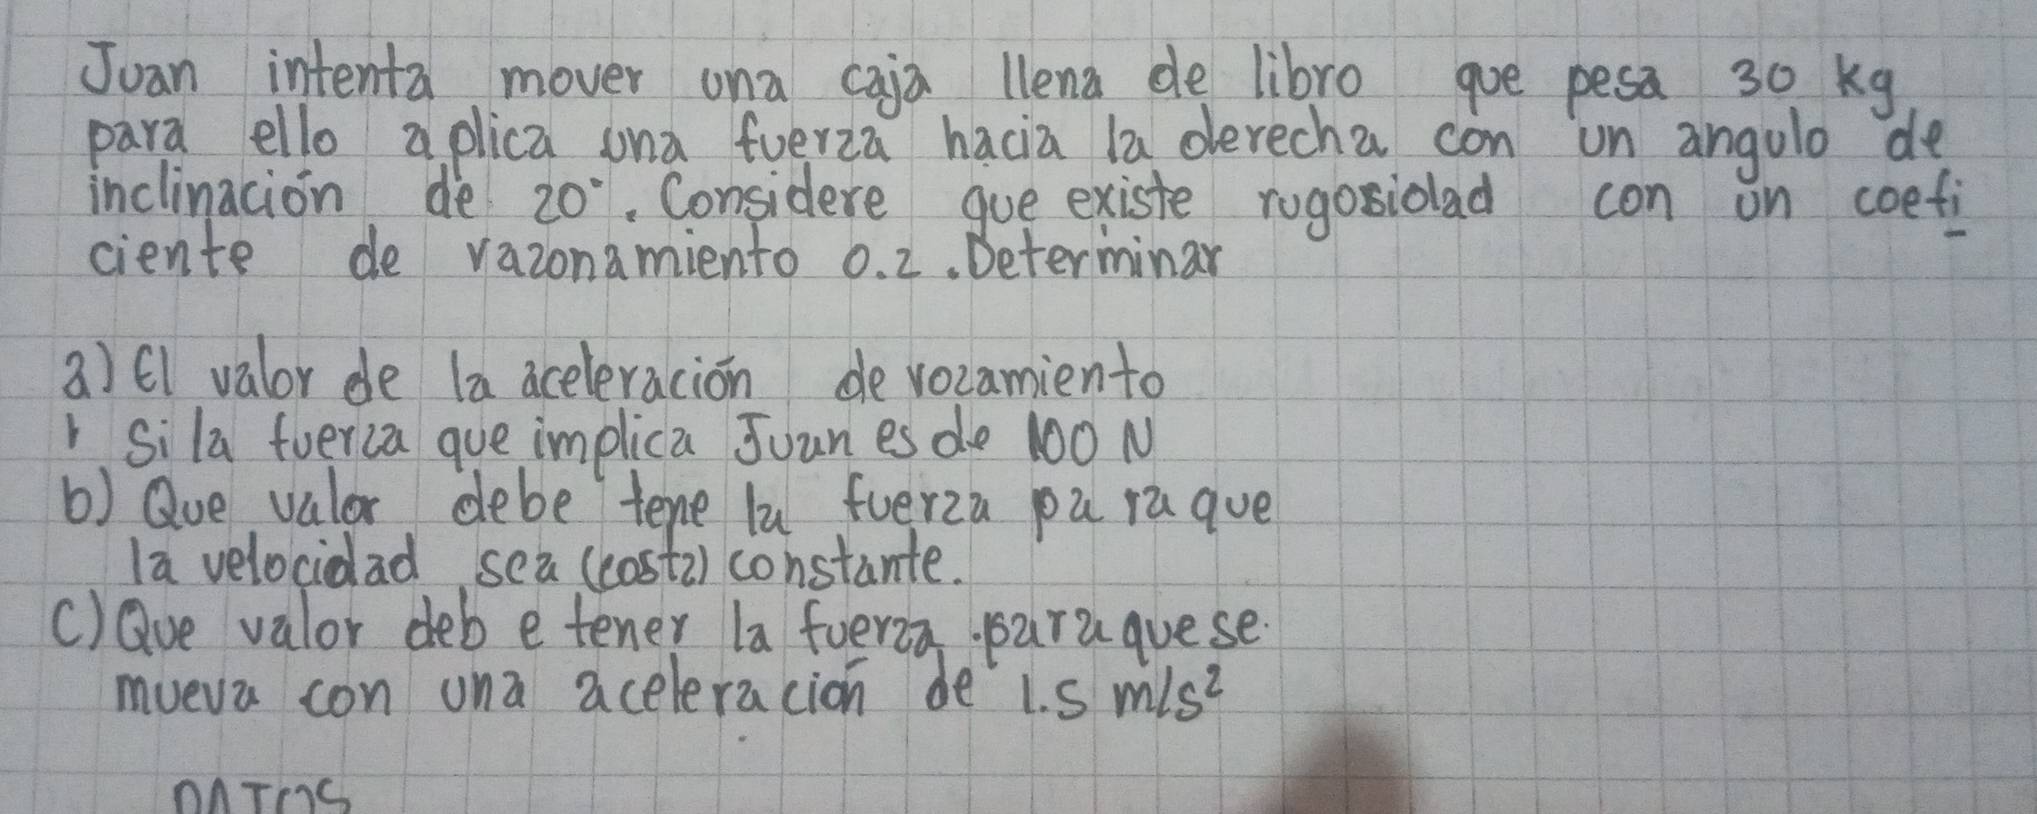 Juan intenta mover una caja llena de libro que pesa 30 kg
para ello aplica una fuerza hacia la derecha con un angulo de
inclinación de 20°. Considere que existe rugosidad con un coefi
ciente de razonamiento 0.2. Determinar
a) El valor de la aceleración de rozamiento
si la fuerza que implica Juan es de 100 N
b) Que valor debe tene la fuerza para que
la velocidad sea (costa) constante.
c) Que valor debe tener la fuerza para que se
mueva con una aceleración de 1.5 m/s²
DATOS